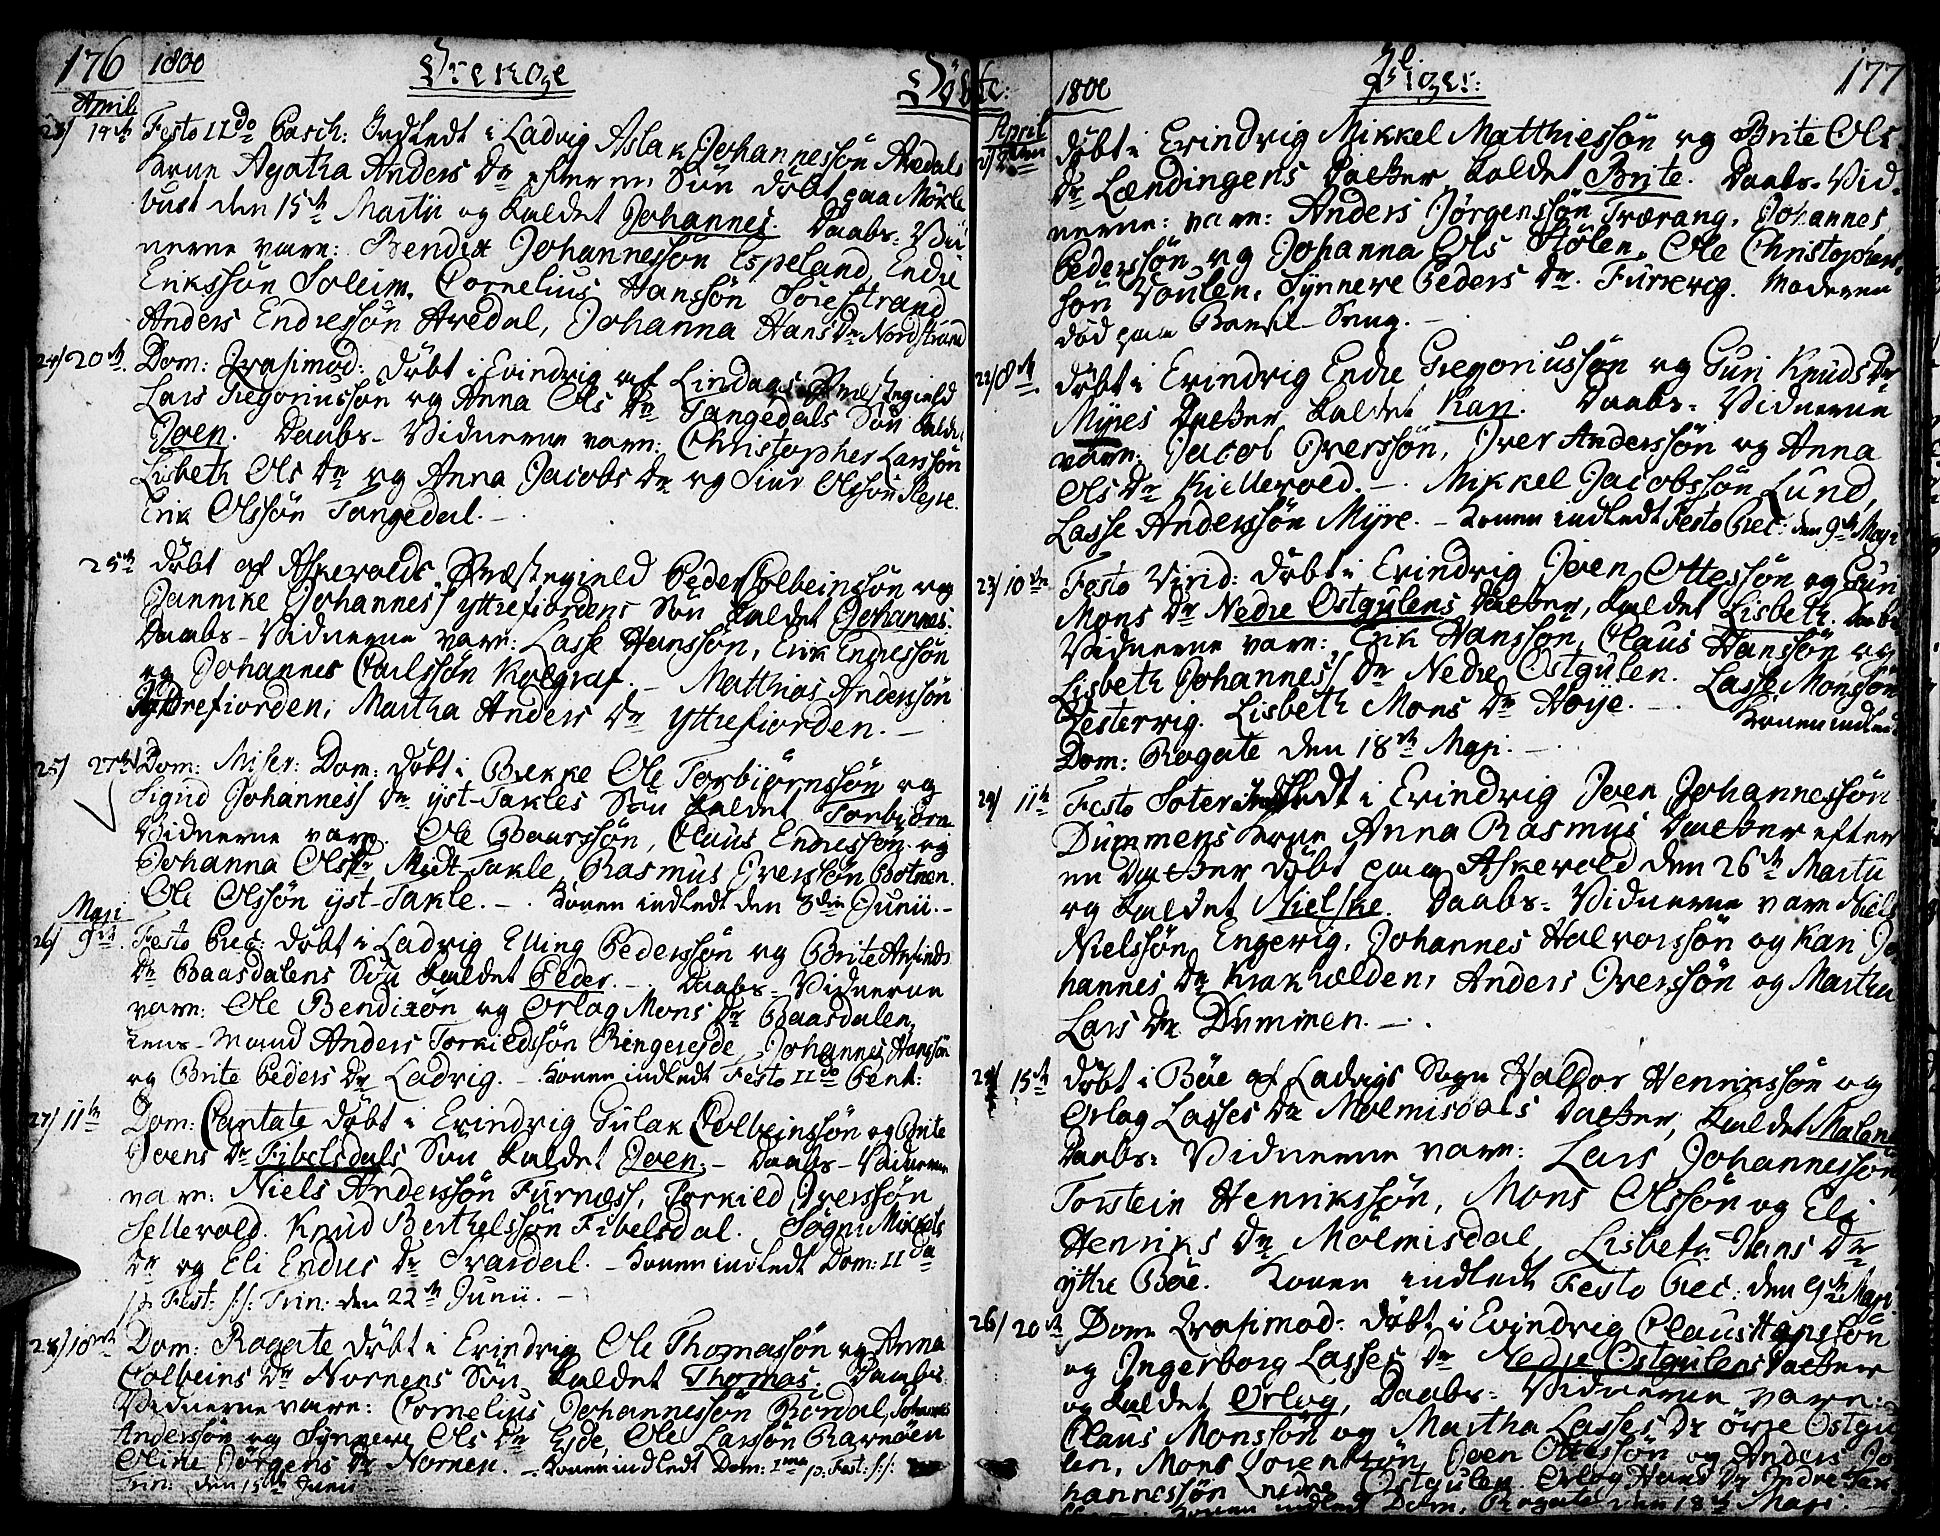 176 1800 Drenge Døbte:
April
23/ 14de Festo IIdo Pasch: Indledt i Ladvig Aslak Johannessøn Aredals
Kone Agatha Anders Dr efter en Søn døbt paa Mökle
bust den 15de Martii og kaldet Johannes. Daabs-Vid
nerne vare: Bendix Johannessøn Espeland, Endre
Erikssøn Soleim, Cornelius Hanssøn Sörestrand
Anders Endressøn Aredal, Johanna Hans Dr Nordstrand
24/ 20de Dom: Qvasimod: døbt i Evindvig af Lindaas Præstegield
Lars Gregoriussøn og Anna Ols Dr Tangedals Søn kaldet
Joen. Daabs-Vidnerne vare: Christopher Larssøn
Lisbeth Ols Dr og Anna Jacobs Dr og Siur Olssøn
Erik Olssøn Tangedal.
25de døbt af Askevolds Præstegield Peder Colbeinssøn og
Jannike Johannes/ yttrefiordens Søn kaldet Johannes.
Daabs-Vidnerne vare: Lasse Hanssøn, Erik Endressøn
og Johannes Carlssøn Kolgraf. - Matthias Anderssøn
Yttrefiorden, Martha Anders Dr yttrefiorden. -
25/ 27de Dom: Miser: Dom: døbt i Brekke Ole Torbiørnssøn og
Sigrid Johannes/ Dr yst-Takles Søn kaldet Torbiørn
Vidnerne vare. Ole Baarssøn, Claus Endressøn og
Johanna Ols Dr Midt-Takle, Rasmus Iverssøn Botnen.
Ole Olssøn yst-Takle. - Konen indledt den 8de Junii. -
Maji
26/ 9de Festo Prec: døbt i Ladvig Elling Pederssøn og Brite Arfinds
Dr Baasdalens Søn kaldet Peder. - Daabs-Vidnerne
vare: Ole Bendixøn og Orlog Mons Dr Baasdalen,
Lens-Mand Anders Torkildssøn Ringereyde, Johannes Hanssøn
og Brite Peders Dr Ladvig. - Konen indledt Festo IIdo Pent:
27/ 11te Dom: Cantate døbt i Evindvig Gulak Colbeinssøn og Brite
Joens Dr Fibelsdals Søn kaldet Joen. - Daabs-Vidnerne
vare: Niels Anderssøn Furness, Torkild Iverssøn
Sellevold. Knud Berthelssøn Fibelsdal. Søgni Mikkels
Dr og Eli Endres Dr Svardal. - Konen indledt Dom: IIda
p: Fest: S:S: Trin: den 22de Junii. -
28/ 18de Dom: Rogate døbt i Evindvig Ole Thomassøn og Anna
Colbeins Dr Nornens Søn kaldet Thomas. Daabs
Vidnerne vare: Cornelius Johannessøn Rördal, Johannes
Anderssøn og Synneve Ols Dr Eyde, Ole Larssøn Ravnöen
Oline Jørgens Dr Nornen. - Konen indledt Dom: Ima p: Fest: S:S:
Trin: den 15de Junii
1800 Piger: 177
April
døbt i Evindvig Mikkel Matthiessøn og Brite Ols
Dr Lændingens Datter kaldet Brite. Daabs-Vid
nerne: vare: Anders Jørgenssøn Trærang, Johannes
Pederssøn og Johanna Ols Stölen. Ole Christophers
søn Voulen, Synneve Peders Dr. Furrevig. Moderen
død paa Barsel-Seng. -
22/ 8de døbt i Evindvig Endre Gregoriussøn og Guri Knuds Dr
Myres Datter kaldet Kari. Daabs-Vidnerne
vare: Jacob Iverssøn, Iver Anderssøn og Anna
Ols Dr Kiellevold. - Mikkel Jacobssøn Lund,
Lasse Anderssøn Myre. - Konen indledt Festo Prec: den 9de Maji
23/ 10de Festo Virid: døbt i Evindvig Joen Ottessøn og Gun
Mons Dr Nedre Ostgulens Datter, kaldet Lisbeth. Daabs
Vidnerne vare: Erik Hanssøn, Claus Hanssøn og
Lisbeth Johannes/ Dr Nedre Ostgulen. Lasse Monssøn
Vestervig. Lisbeth Mons Dr Høye. - Konen indledt
Dom: Rogate den 18de Maji. -
24/ 11te Festo Soter: Indledt i Evindvig Joen Johannessøn
Dummens Kone Anna Rasmus Datter efter
en Datter døbt paa Askevold den 26de Martii
og kaldet Nielske. Daabs-Vidnerne vare Niels
Nielssøn Engevig. Johannes Halvorssøn og Kari Jo
hannes Dr Krakhelden, Anders Iverssøn og Martha
Lars Dr Dummen. -
25/ 15de døbt i Böe af Ladvigs Sogn Haldor Henrikssøn og
Orlog Lasses Dr Molmisdals Datter, kaldet Malena
Daabs-Vidnerne vare: Lars Johannessøn,
Torstein Henrikssøn, Mons Olssøn og Eli
Henriks Dr Molmisdal, Lisbeth Jans Dr
yttre Böe. Konen indledt Festo Prec: den 9de Maji.
26/ 20de Dom: Qvasimod: døbt i Evindvig Claus Hanssøn
og Ingerborg Lasses Dr Nedre Ostgulens Datter
og kaldet Orlog, Daabs-Vidnerne vare:
Claus Monssøn og Martha Lasses Dr övre Ostgu
len, Mons Lorentzøn, Joen Ottessøn og Anders Jo
hannessøn nedre Ostgulen. Orlog Hans Dr Indre
Konen indledt Dom: Rogate den 18de Maji. -